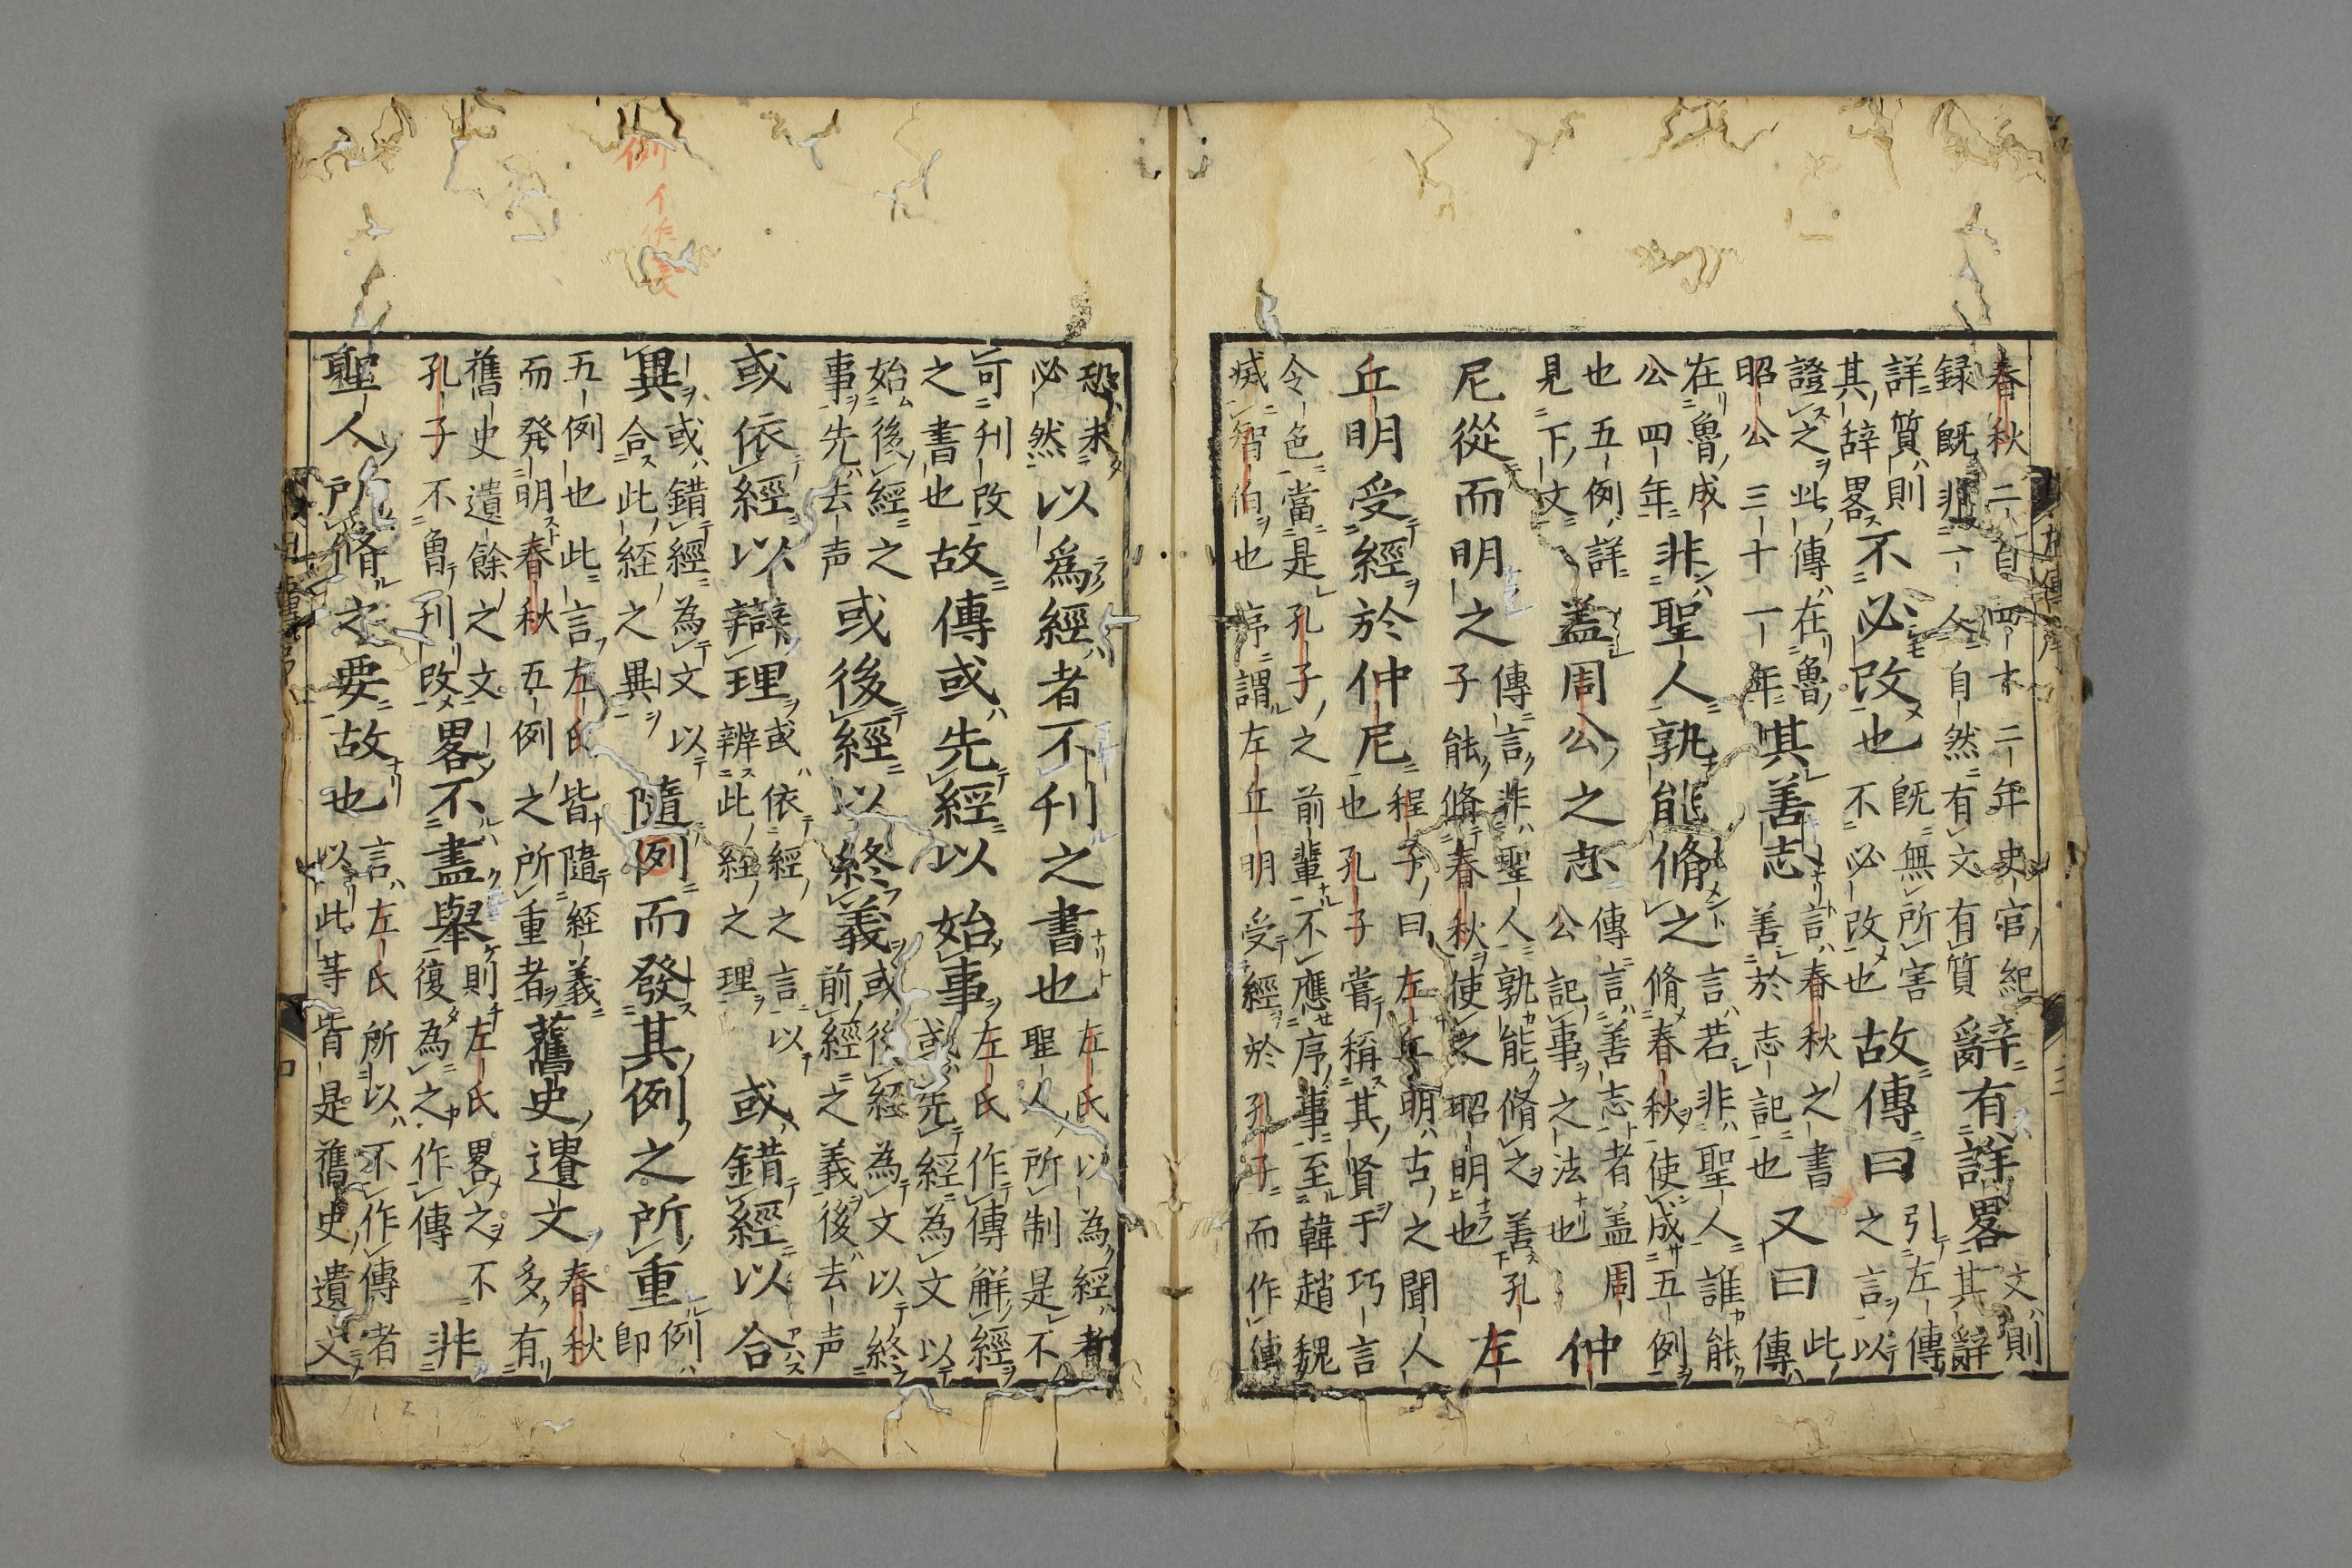 春秋二百四十二年史官紀録既非一人自然有文有質辭有詳畧文則其辭
詳質則其辞畧不必改也既無所害不必改也故傳曰引左傳之言以
證之此傳在魯昭公三十一年其善志言春秋之書善於志記也又曰此傳
在魯成公四年非聖人孰能脩之言若非聖人誰能脩春秋使成五例
也五例詳見下文盖周公之志傳言善志者盖周公記事之法也仲
尼從而明之傳言非聖人孰能脩之善孔子能脩春秋使之昭明也左
丘明受經於仲尼程子曰左丘明古之聞人也孔子嘗稱其贤于巧言
令色當是孔子之前輩不應序事至韓趙魏㓕智伯也序謂左丘明受經於孔子而作傳
恐未必然以爲經者不刊之書也左氏以為經者聖人所制是不
可刊改之書也故傳或先經以始事左氏作傳觧經或先經為文以
始後經之事先去声或後經以終義或後經為文以終前經之義後去声
或依經以辯理或依經之言以辨此経之理或錯經以合
異或錯經為文以合此経之異隨例而發其例之所重例即
五例也此言左氏皆隨経義而発明春秋五例之所重者舊史遺文春秋多有
舊史遺餘之文孔子不魯刊改畧不盡舉則左氏畧之不復為之作傳非
聖人所脩之要故也言左氏所以不作傳者以此等皆是舊史遺文
例イ作